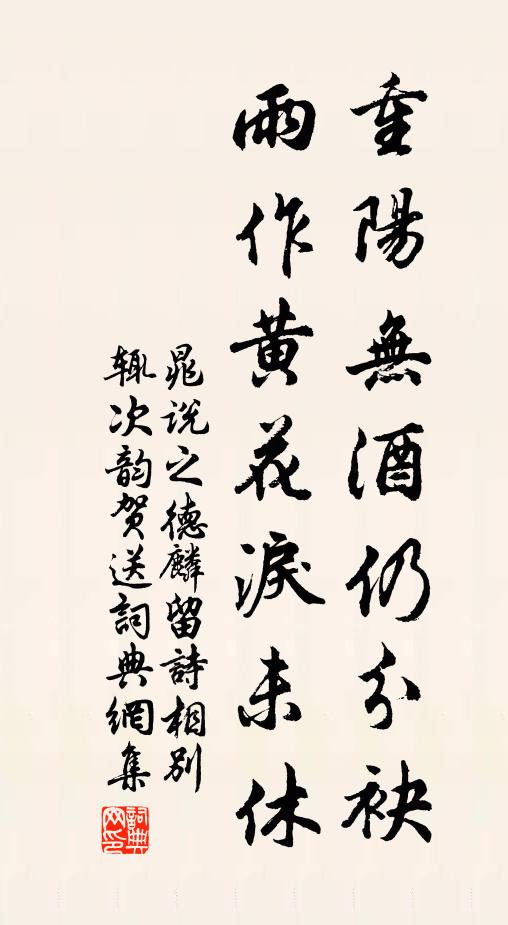 重陽無酒仍分袂
雨作黄花淚未休
晁说之德麟留詩相別
辄次韵贺送詞典網集
詞典
网印